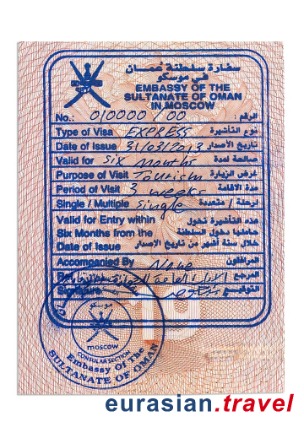 سفارة سلطنة عمان
في موسكو
EMBASSY OF THE
SULTANATE OF OMAN
IN MOSCOW
No.: 010000/00 الرقم
Type of Visa EXPRESS نوع التأشيرة
Date of Issue 31/03/2013 تاريخ الأصدار
Valid for Six Months صالحة لمدة
Purpose of Visit Tourism غرض الزيارة
Period of Visit 3 weeks مدة الاقامة
Single / Multiple Single لرحلة / متعددة
Valid for Entry within هذه التأشيرة تخول
Six Months from the حاملها دخول السلطنة
Date of Issue خلال ستة أشهر من تاريخ الأصدار
Accompanied By None المرافقون
المرجع
التوقيع
19
موسكو
MOSCOW
CONSULAR SECTION
Embassy Of the
SULTANATE OF OMAN
eurasian.travel